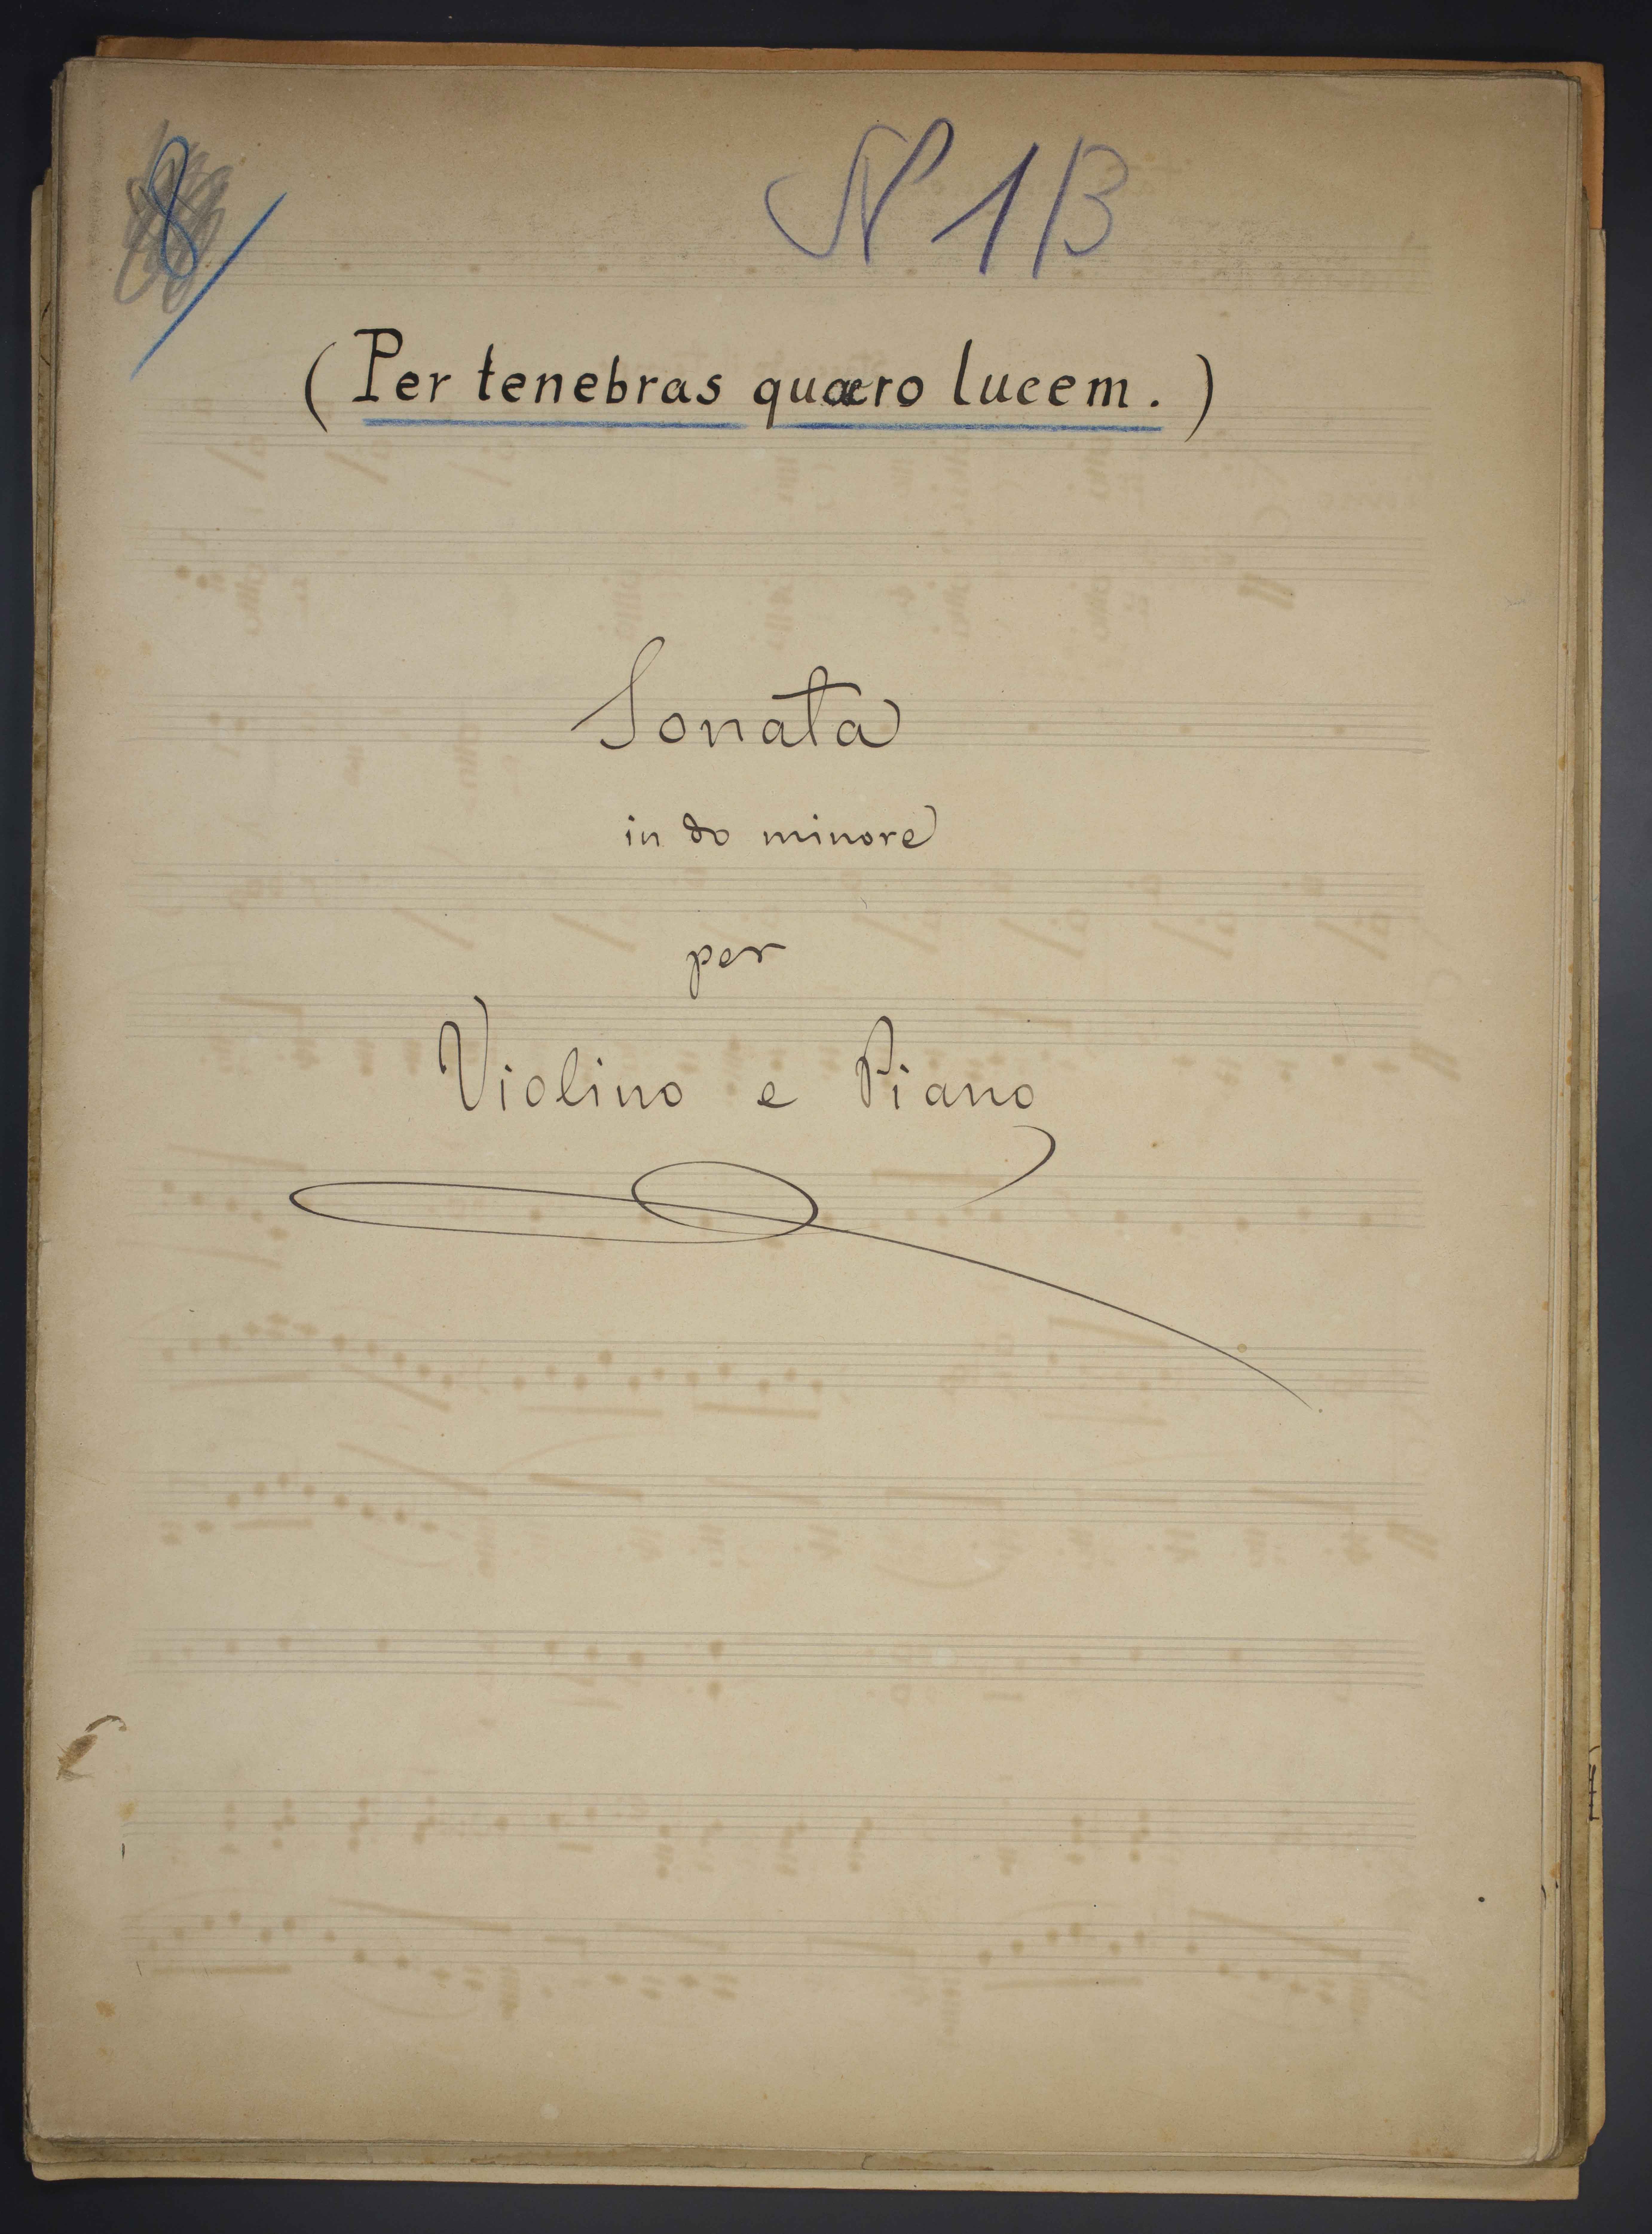 8
N 1B
(Per tenebras quæro lucem.)
Sonata
in do minore
per
Violino e Piano